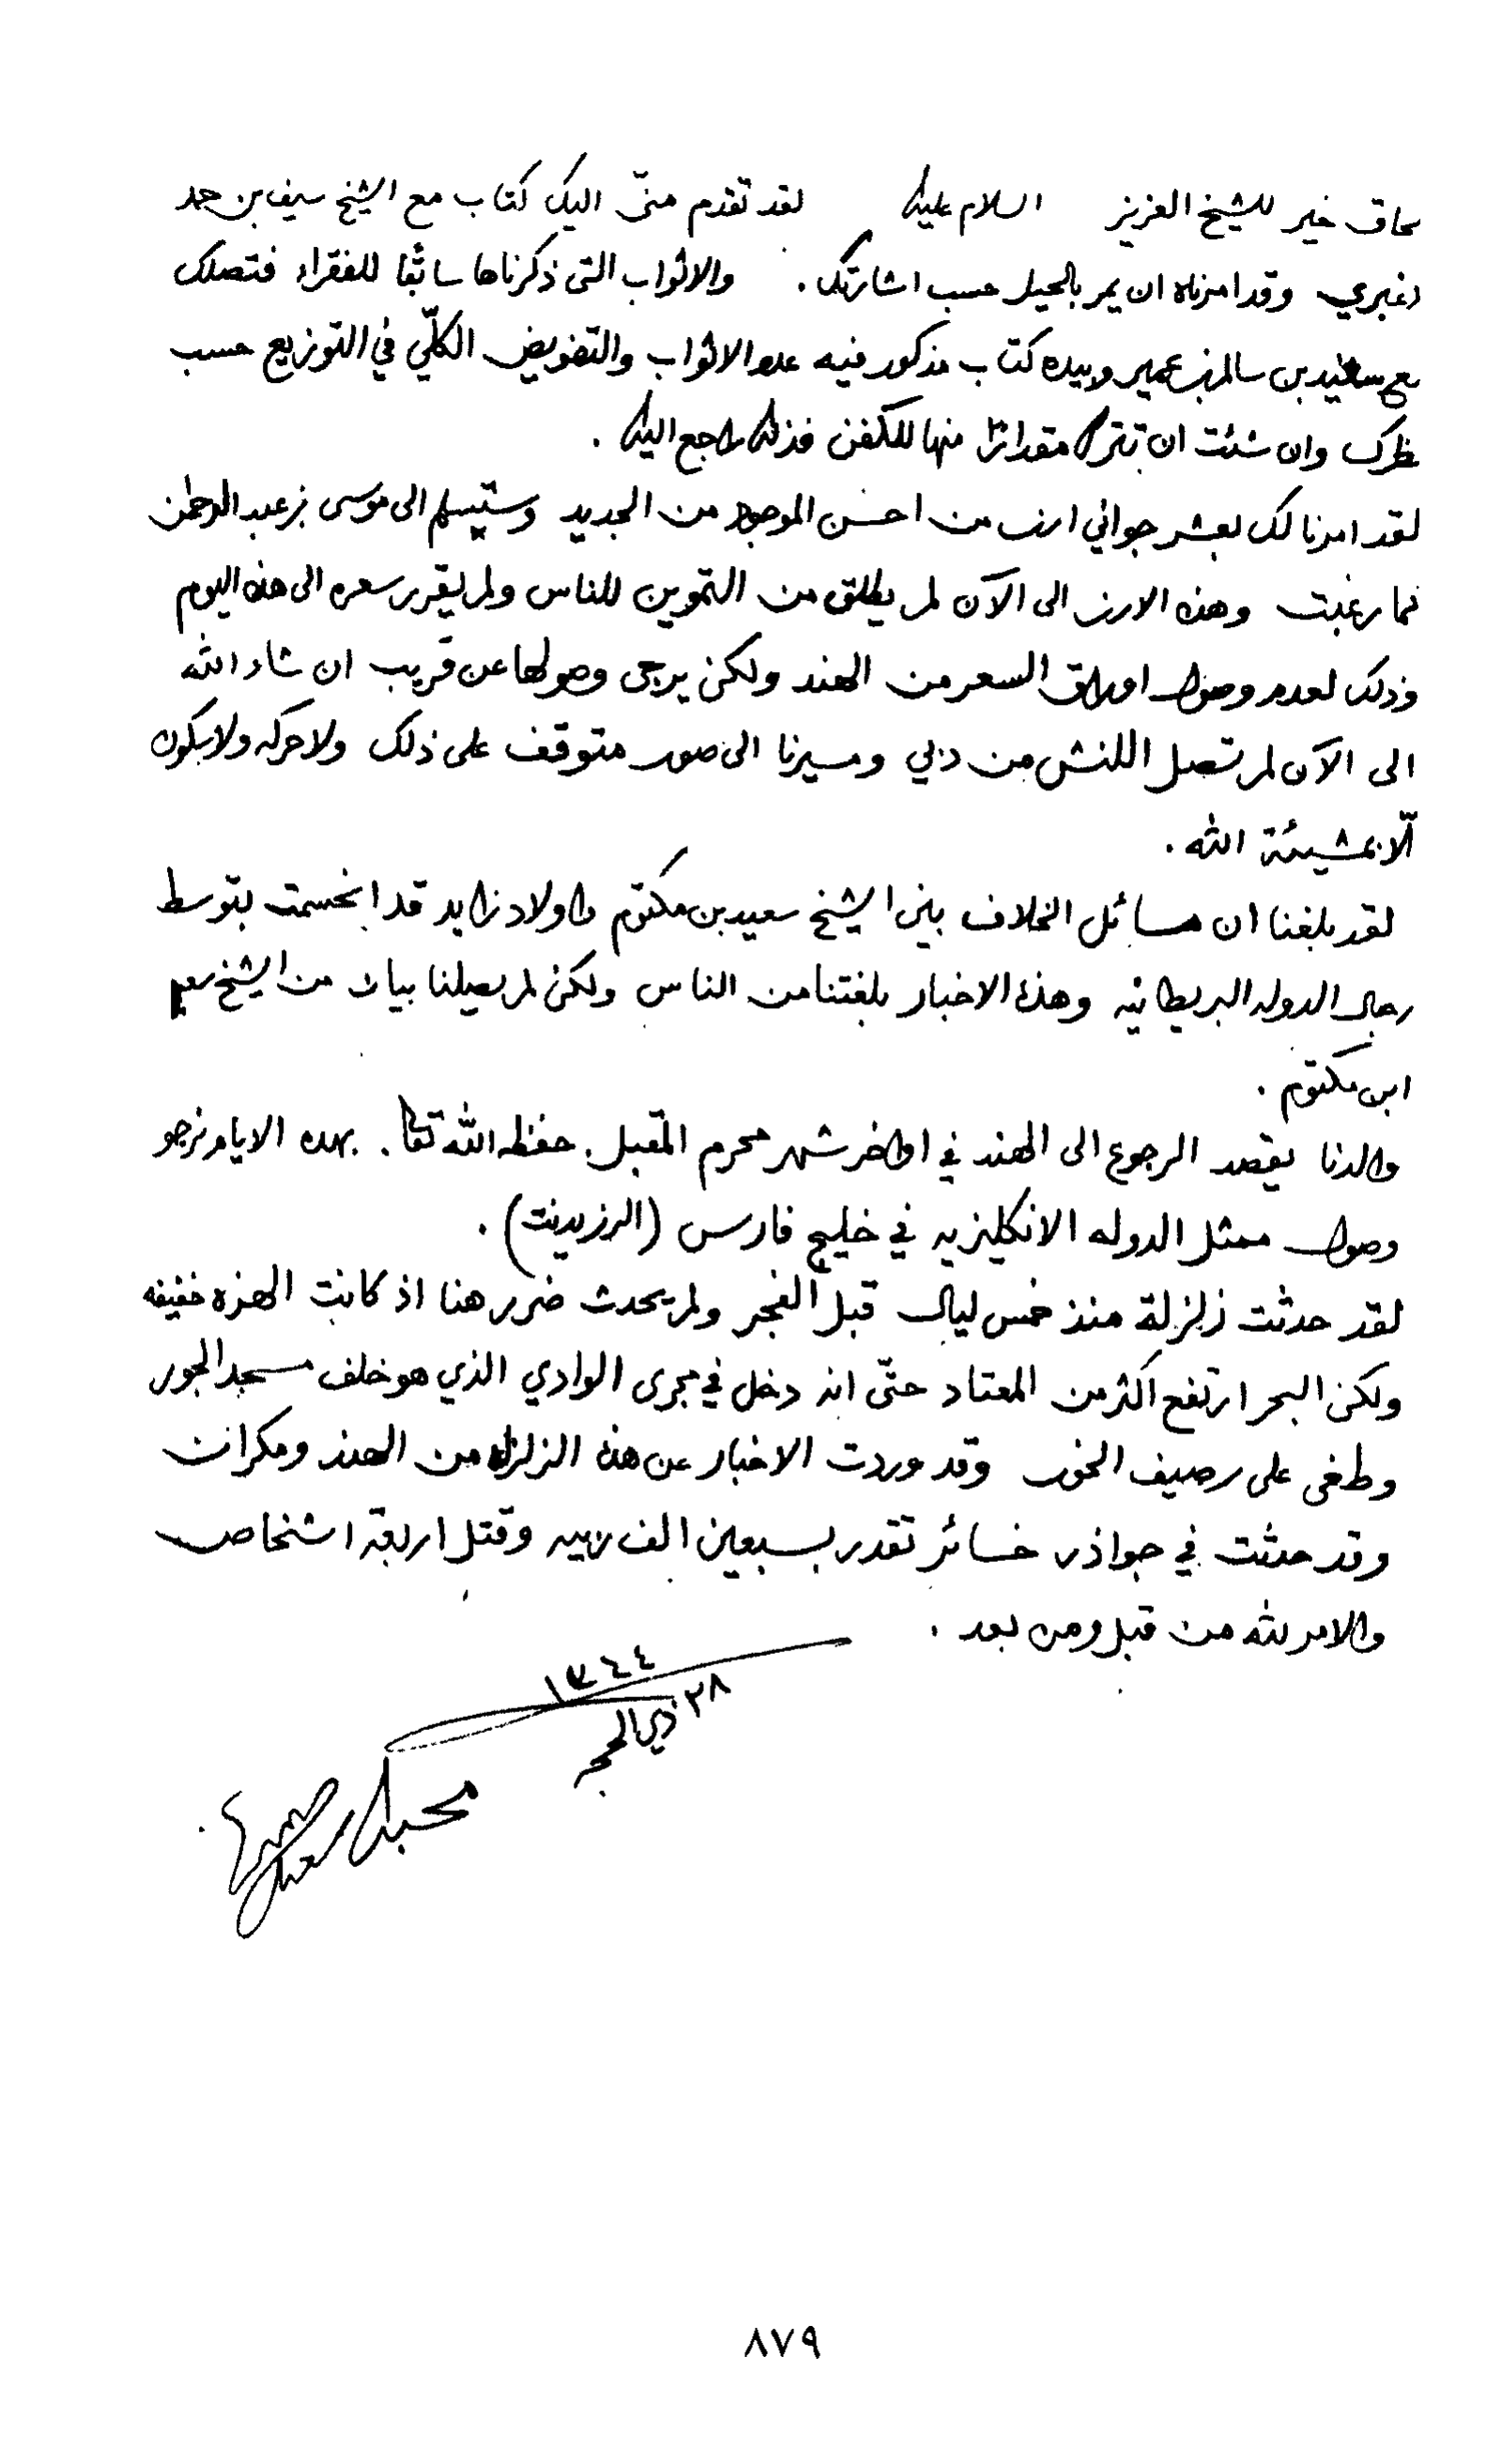 لحاق خير للشيخ العزيز السلام عليك لقد تقدم منّي اليك كتاب مع الشيخ سيف بن حمد
وقد امرناه ان يمر بالحيل حسب اشارتك . والاثواب التي ذكرناها سابقا للفقراء فتصلك
مع سعيد بن سالم بن عمير وبيده كتاب مذكور فيه عدد الاثواب والتفويض الكلّي في التوزيع حسب
نظرك وان شئت ان تترك مقدارا منها للكفن فذلك راجع اليك .
لقد امرنا لك بعشر جواني ارز من احسن الموجود من الجديد وستسلم الى موسى بن عبد الرحمن
كما رغبت وهذه الارز الى الآن لم يطلق من التموين للناس ولم يقرر سعره الى هذه اليوم
وذلك لعدم وصول اوراق السعر من الهند ولكن يرجى وصولها عن قريب ان شاء الله
الى الآن لم تصل اللنش من دبي ومسيرنا الى صور متوقف على ذلك ولا حركه ولا سكون
الّا بمشيئة الله .
لقد بلغنا ان مسائل الخلاف بين الشيخ سعيد بن مكتوم واولاد زايد قد انحسمت بتوسط
رجال الدوله البريطانيه وهذه الاخبار بلغتنا من الناس ولكن لم يصلنا بيان من الشيخ سعيد
ابن مكتوم .
والدنا يقصد الرجوع الى الهند في اواخر شهر محرم المقبل . حفظه الله تعالى . بهذه الايام نرجو
وصول ممثل الدوله الانكليزيه في خليج فارس (الرزيدنت) .
لقد حدثت زلزلة منذ خمس ليال قبل الفجر ولم يحدث ضرر هنا اذ كانت الهزه خفيفه
ولكن البحر ارتفع اكثر من المعتاد حتّى انه دخل في مجرى الوادي الذي هو خلف مسجد الخور
وطغى على رصيف الخور وقد وردت الاخبار عن هذه الزلزله من الهند ومكران
وقد حدثت في جواذر خسائر تقدر بسبعين الف ربيه وقتل اربعة اشخاص
والامر لله من قبل ومن بعد .
١٣٦٤
٢٨ ذي الحجه
محبك
٨٧٩